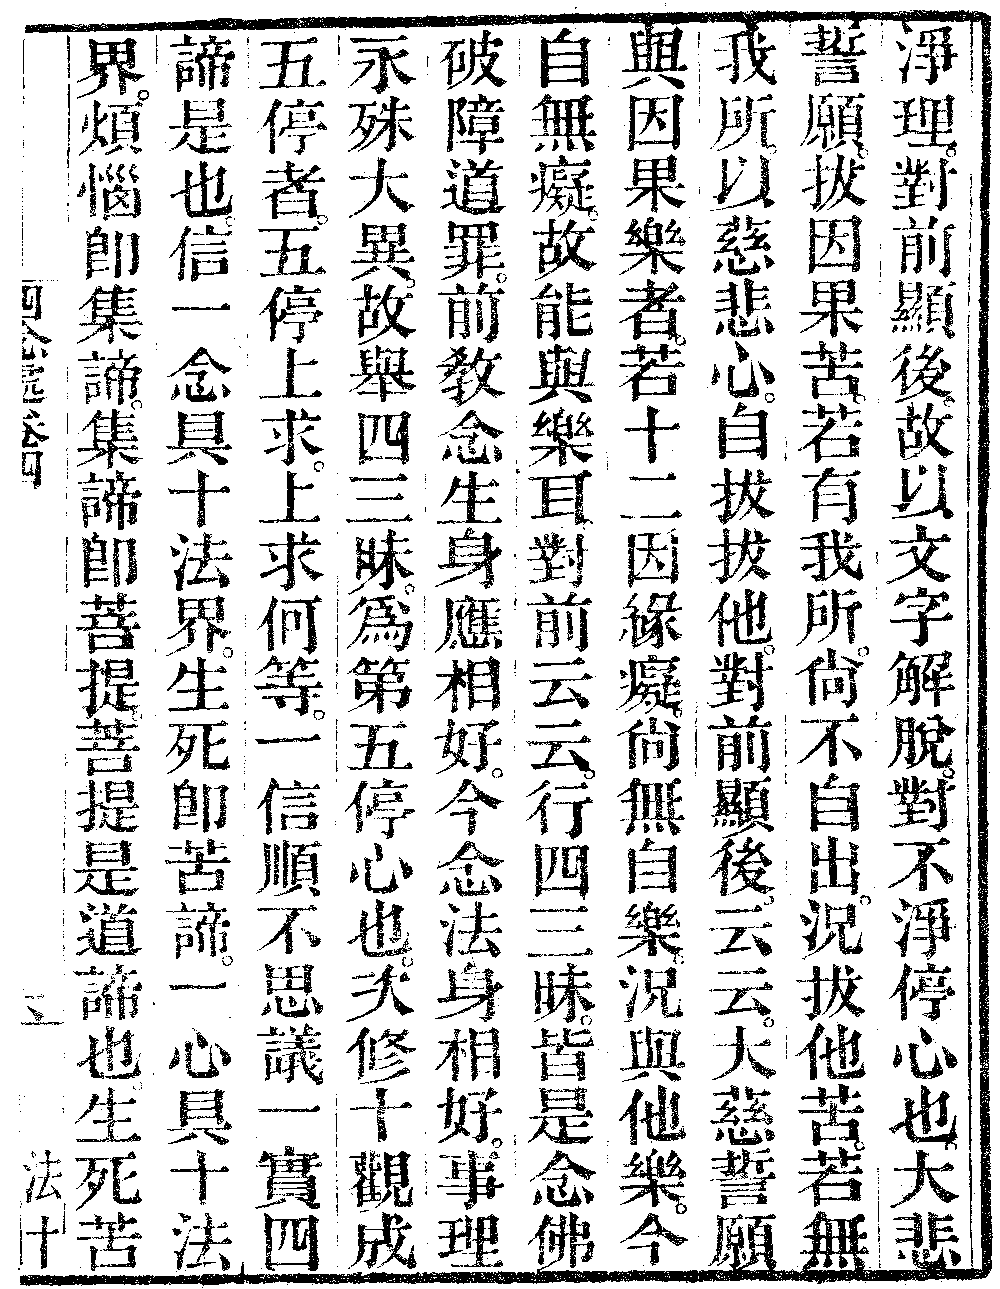 淨理。對前顯後。故以文字解脫。對不淨停心也。大悲
誓願。拔因果苦。若有我所。尙不自出。況拔他苦。若無
我所。以慈悲心。自拔拔他。對前顯後。云云。大慈誓願
與因果樂者。若十二因緣癡。尙無自樂。況與他樂。今
自無癡。故能與樂耳。對前云云。行四三昧。皆是念佛
破障道罪。前教念生身應相好。今念法身相好。事理
永殊大異。故舉四三昧。爲第五停心也。次修十觀成
五停者。五停上求。上求何等。一信順不思議一實四
諦是也。信一念具十法界。生死卽苦諦。一心具十法
界。煩惱卽集諦。集諦卽菩提。菩提是道諦也。生死苦
四念處卷四
法十